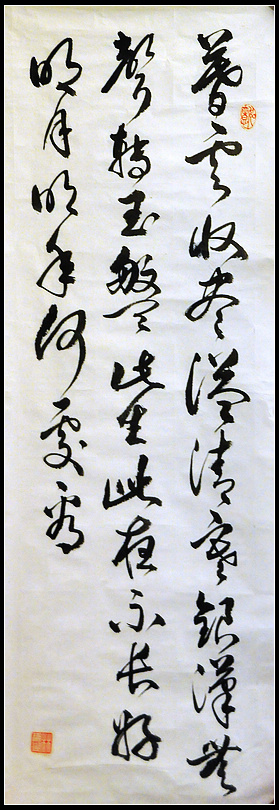 暮雲收盡溢清寒銀漢無
聲轉玉盤此生此夜不長好
明月明年何處看